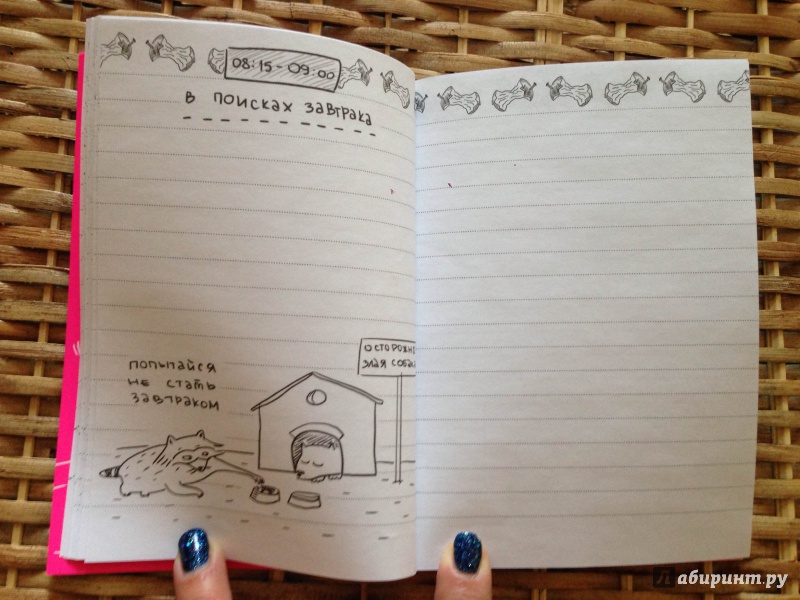 08:15-09:00
в поисках завтрака
попытайся
не стать
завтраком
осторожно
злая соба
Лабиринт.ру